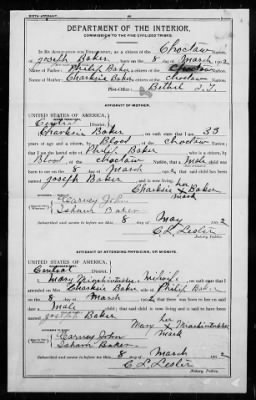 BIRTH AFFIDAVIT.
DEPARTMENT OF THE INTERIOR.
COMMISSION TO THE FIVE CIVILIZED TRIBES.
IN RE APPLICATION FOR ENROLLMENT, as a citizen of the Choctaw Nation,
of Joseph Baker, born on the 8 day of March, 1902
Name of Father: Philip Baker, a citizen of the Choctaw Nation.
Name of Mother: Charksie Baker, a citizen of the Choctaw Nation.
Post-Office: Bethel I.T.
AFFIDAVIT OF MOTHER.
UNITED STATES OF AMERICA,
Central District.
I, Charksie Baker, on oath state that I am 33
years of age and a citizen, by Blood, of the Choctaw Nation;
that I am the lawful wife of Philip Baker, who is a citizen, by
Blood, of the Choctaw Nation; that a Male child was
born to me on the 8 day of March, 1902, that said child has been
named Joseph Baker, and is now living.
her
Charksie x Baker
mark
Carney John
Isham Baker
Subscribed and sworn to before me this 8 day of May, 1902
C. L. Lester
Notary Public.
AFFIDAVIT OF ATTENDING PHYSICIAN, OR MIDWIFE.
UNITED STATES OF AMERICA,
Central District.
I, Mary, a Midwife, on oath state that I
attended on Mrs. Charksie Baker, wife of Philip Baker
on the 8 day of March, 1902; that there was born to her on said
date a Male child; that said child is now living and is said to have been
named Joseph Baker
her
Mary x
mark
Carney John
Isham Baker
Subscribed and sworn to before me this 8 day of March, 1902
C. L. Lester
Notary Public.